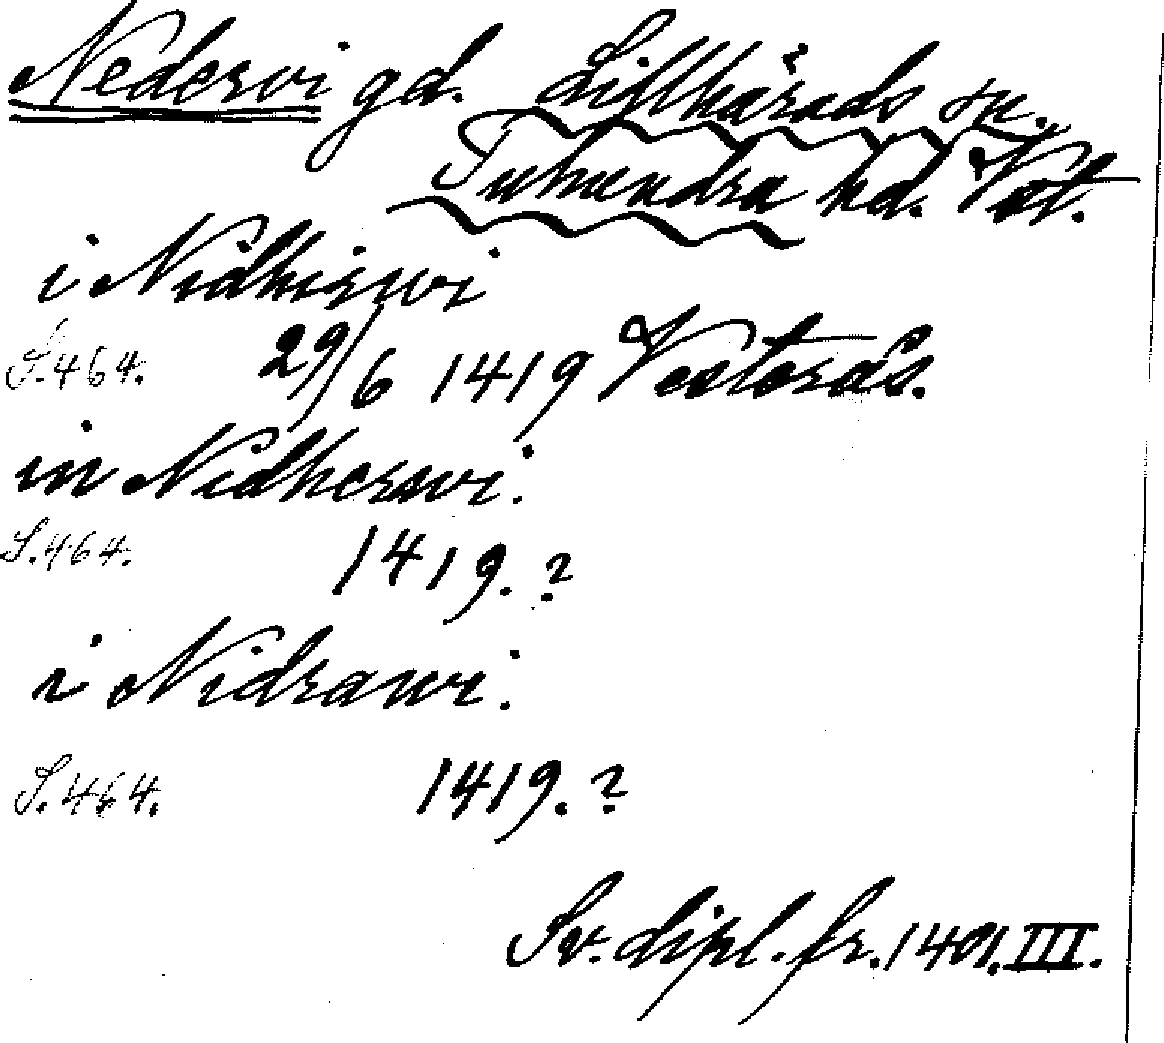 Nedervi gd. Lillhärads sn.
Tuhundra hd. Vstm.
i Nidhirwi
S. 464. 29/6 1419 Vesterås.
in Nidherwi.
S. 464. 1419. ?
i Nidrawi.
S. 464. 1419. ?
Sv. dipl. fr. 1401. III.